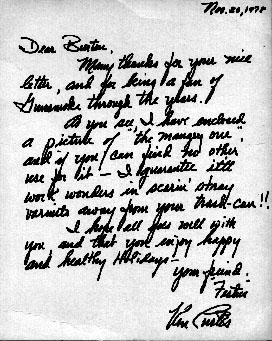 Nov. 20, 1978
Dear Burton,
Many thanks for your nice
letter, and for being a fan of
Gunsmoke through the years.
As you see, I have enclosed
a picture of "the mangey one",
and if you can find no other
use for it – I guarantee it'll
work wonders in scarin' stray
varmits away from your trash-can!!
I hope all goes well with
you and that you enjoy happy
and healthy Holidays –
your friend,
"Festus"
Ken Curtis